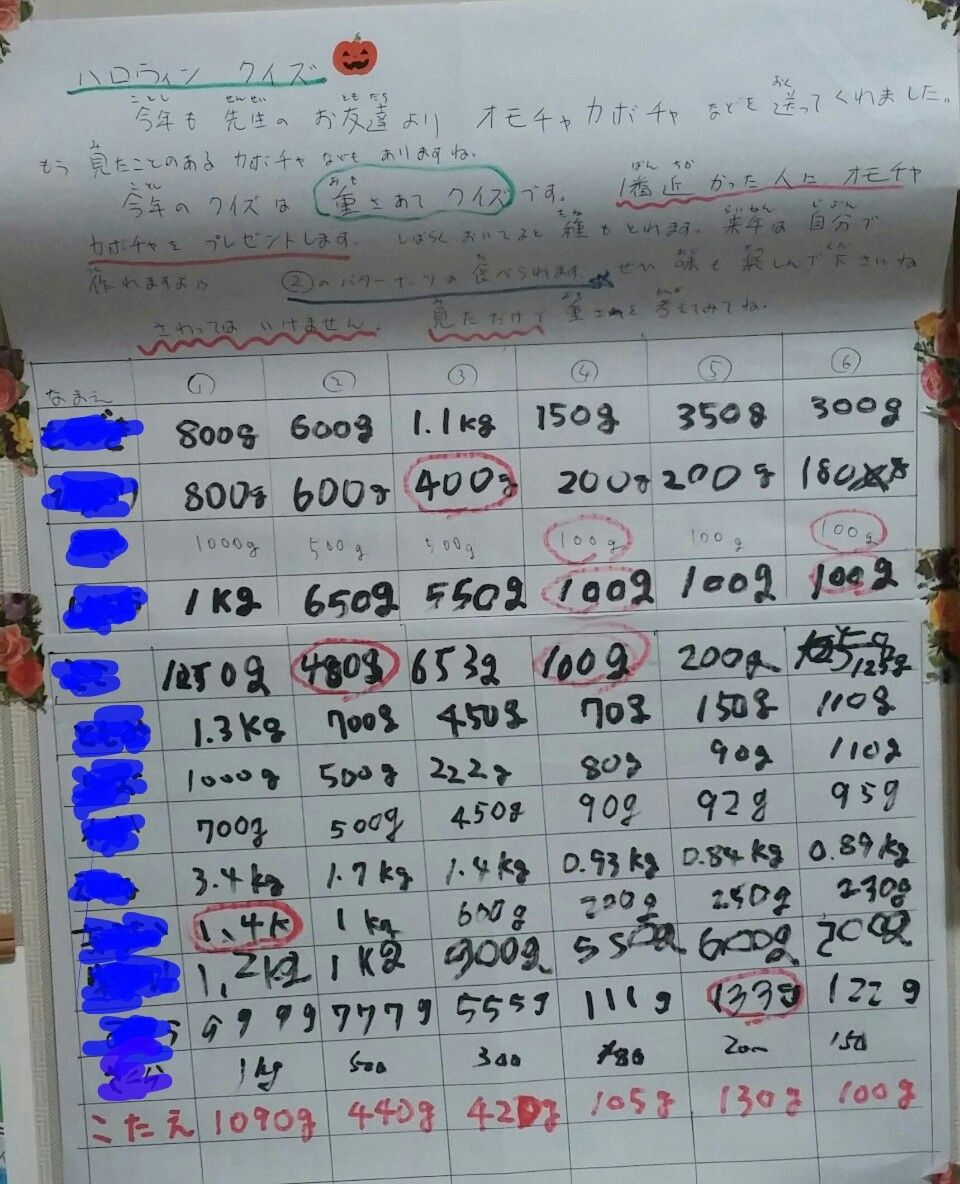 ハロウィン クイズ
今年も 先生の お友達より オモチャカボチャ などを 送ってくれました。
もう 見たことのある カボチャなども ありますね。
今年の クイズは 重さあて クイズです。 1番近かった人に オモチャ
カボチャを プレゼントします。 しばらく おいてると 種もとれます。来年は 自分で
作れますよ ②のバターナッツの 食べられます。 ぜひ 味も 楽しんで下さいね
さわっては いけません。 見ただけで 重さを 考えてみてね。
なまえ ① ② ③ ④ ⑤ ⑥
800g 600g 1.1kg 150g 350g 300g
800g 600g 400g 200g 200g 180g
1000g 500g 500g 100g 100g 100g
1kg 650g 550g 100g 100g 100g
1250g 480g 653g 100g 200g 125g
1.3kg 700g 450g 70g 150g 110g
1000g 500g 222g 80g 90g 110g
700g 500g 450g 90g 92g 95g
3.4kg 1.7kg 1.4kg 0.93kg 0.84kg 0.89kg
1.4k 1kg 600g 200g 250g 230g
1.2kg 1kg 900g 550g 600g 200g
999g 777g 555g 111g 133g 122g
1kg 500 300 180 200 150
こたえ 1090g 440g 420g 105g 130g 100g